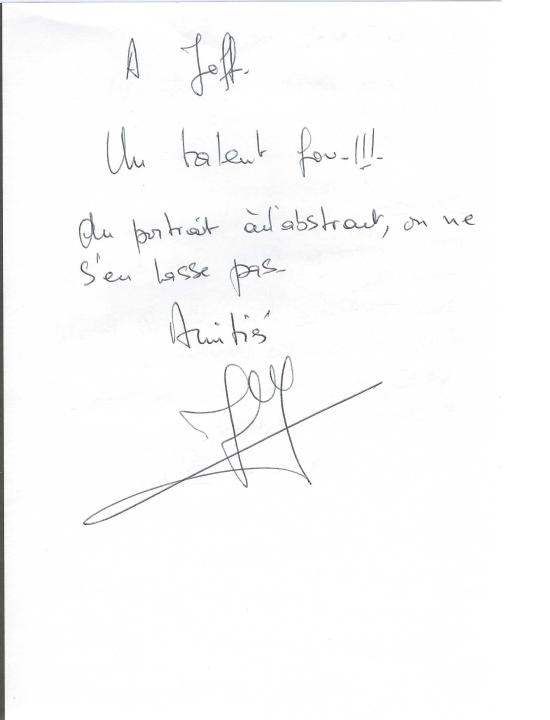 A Jeff.
Un talent fou-!!!-
Du portrait à l'abstrait, on ne
s'en lasse pas-
Amitiés